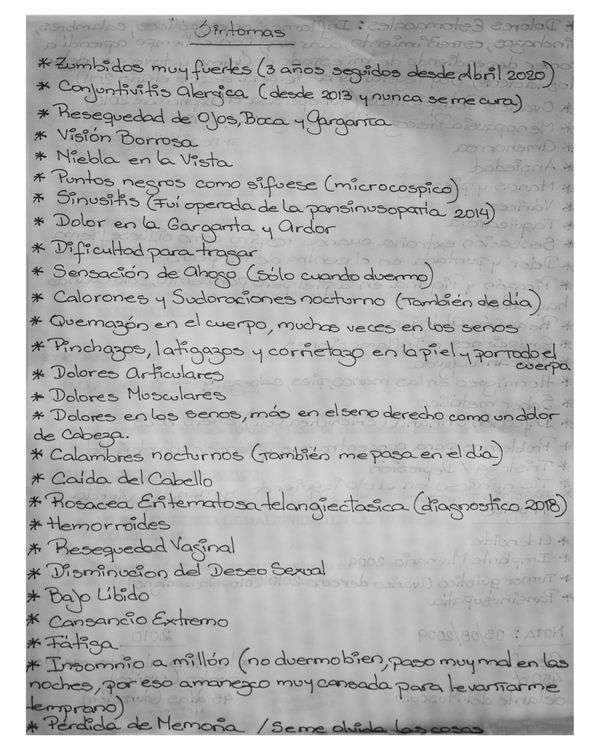 Síntomas
* Zumbidos muy fuertes (3 años seguidos desde Abril 2020)
* Conjuntivitis alergica (desde 2013 y nunca se me cura)
* Resequedad de Ojos, Boca y garganta
* Visión Borrosa
* Niebla en la Vista
* Puntos negros como sifuese (microcospico)
* Sinusitis (Fuí operada de la pansinusopatia 2014)
* Dolor en la Garganta y Ardor
* Dificultad para tragar
* Sensación de Ahogo (sólo cuando duermo)
* Calorones y Sudoraciones nocturno (También de día)
* Quemazón en el cuerpo, muchas veces en los senos
* Pinchazos, latigazos y corrietazo en la piel y por todo el
cuerpo.
* Dolores Articulares
* Dolores Musculares
* Dolores en los senos, más en el seno derecho como un dolor
de Cabeza.
* Calambres nocturnos (También me pasa en el día)
* Caída del Cabello
* Rosacea Eritematosa telangiectasica (diagnostico 2018)
* Hemorroides
* Resequedad Vaginal
* Disminucion del Deseo Sexual
* Bajo Líbido
* Cansancio Extremo
* Fátiga.
* Insomnio a millón (no duermo bien, paso muy mal en las
noches, por eso amanezco muy cansada para levantarme
temprano)
* Pérdida de Memoria / Se me olvida las cosas